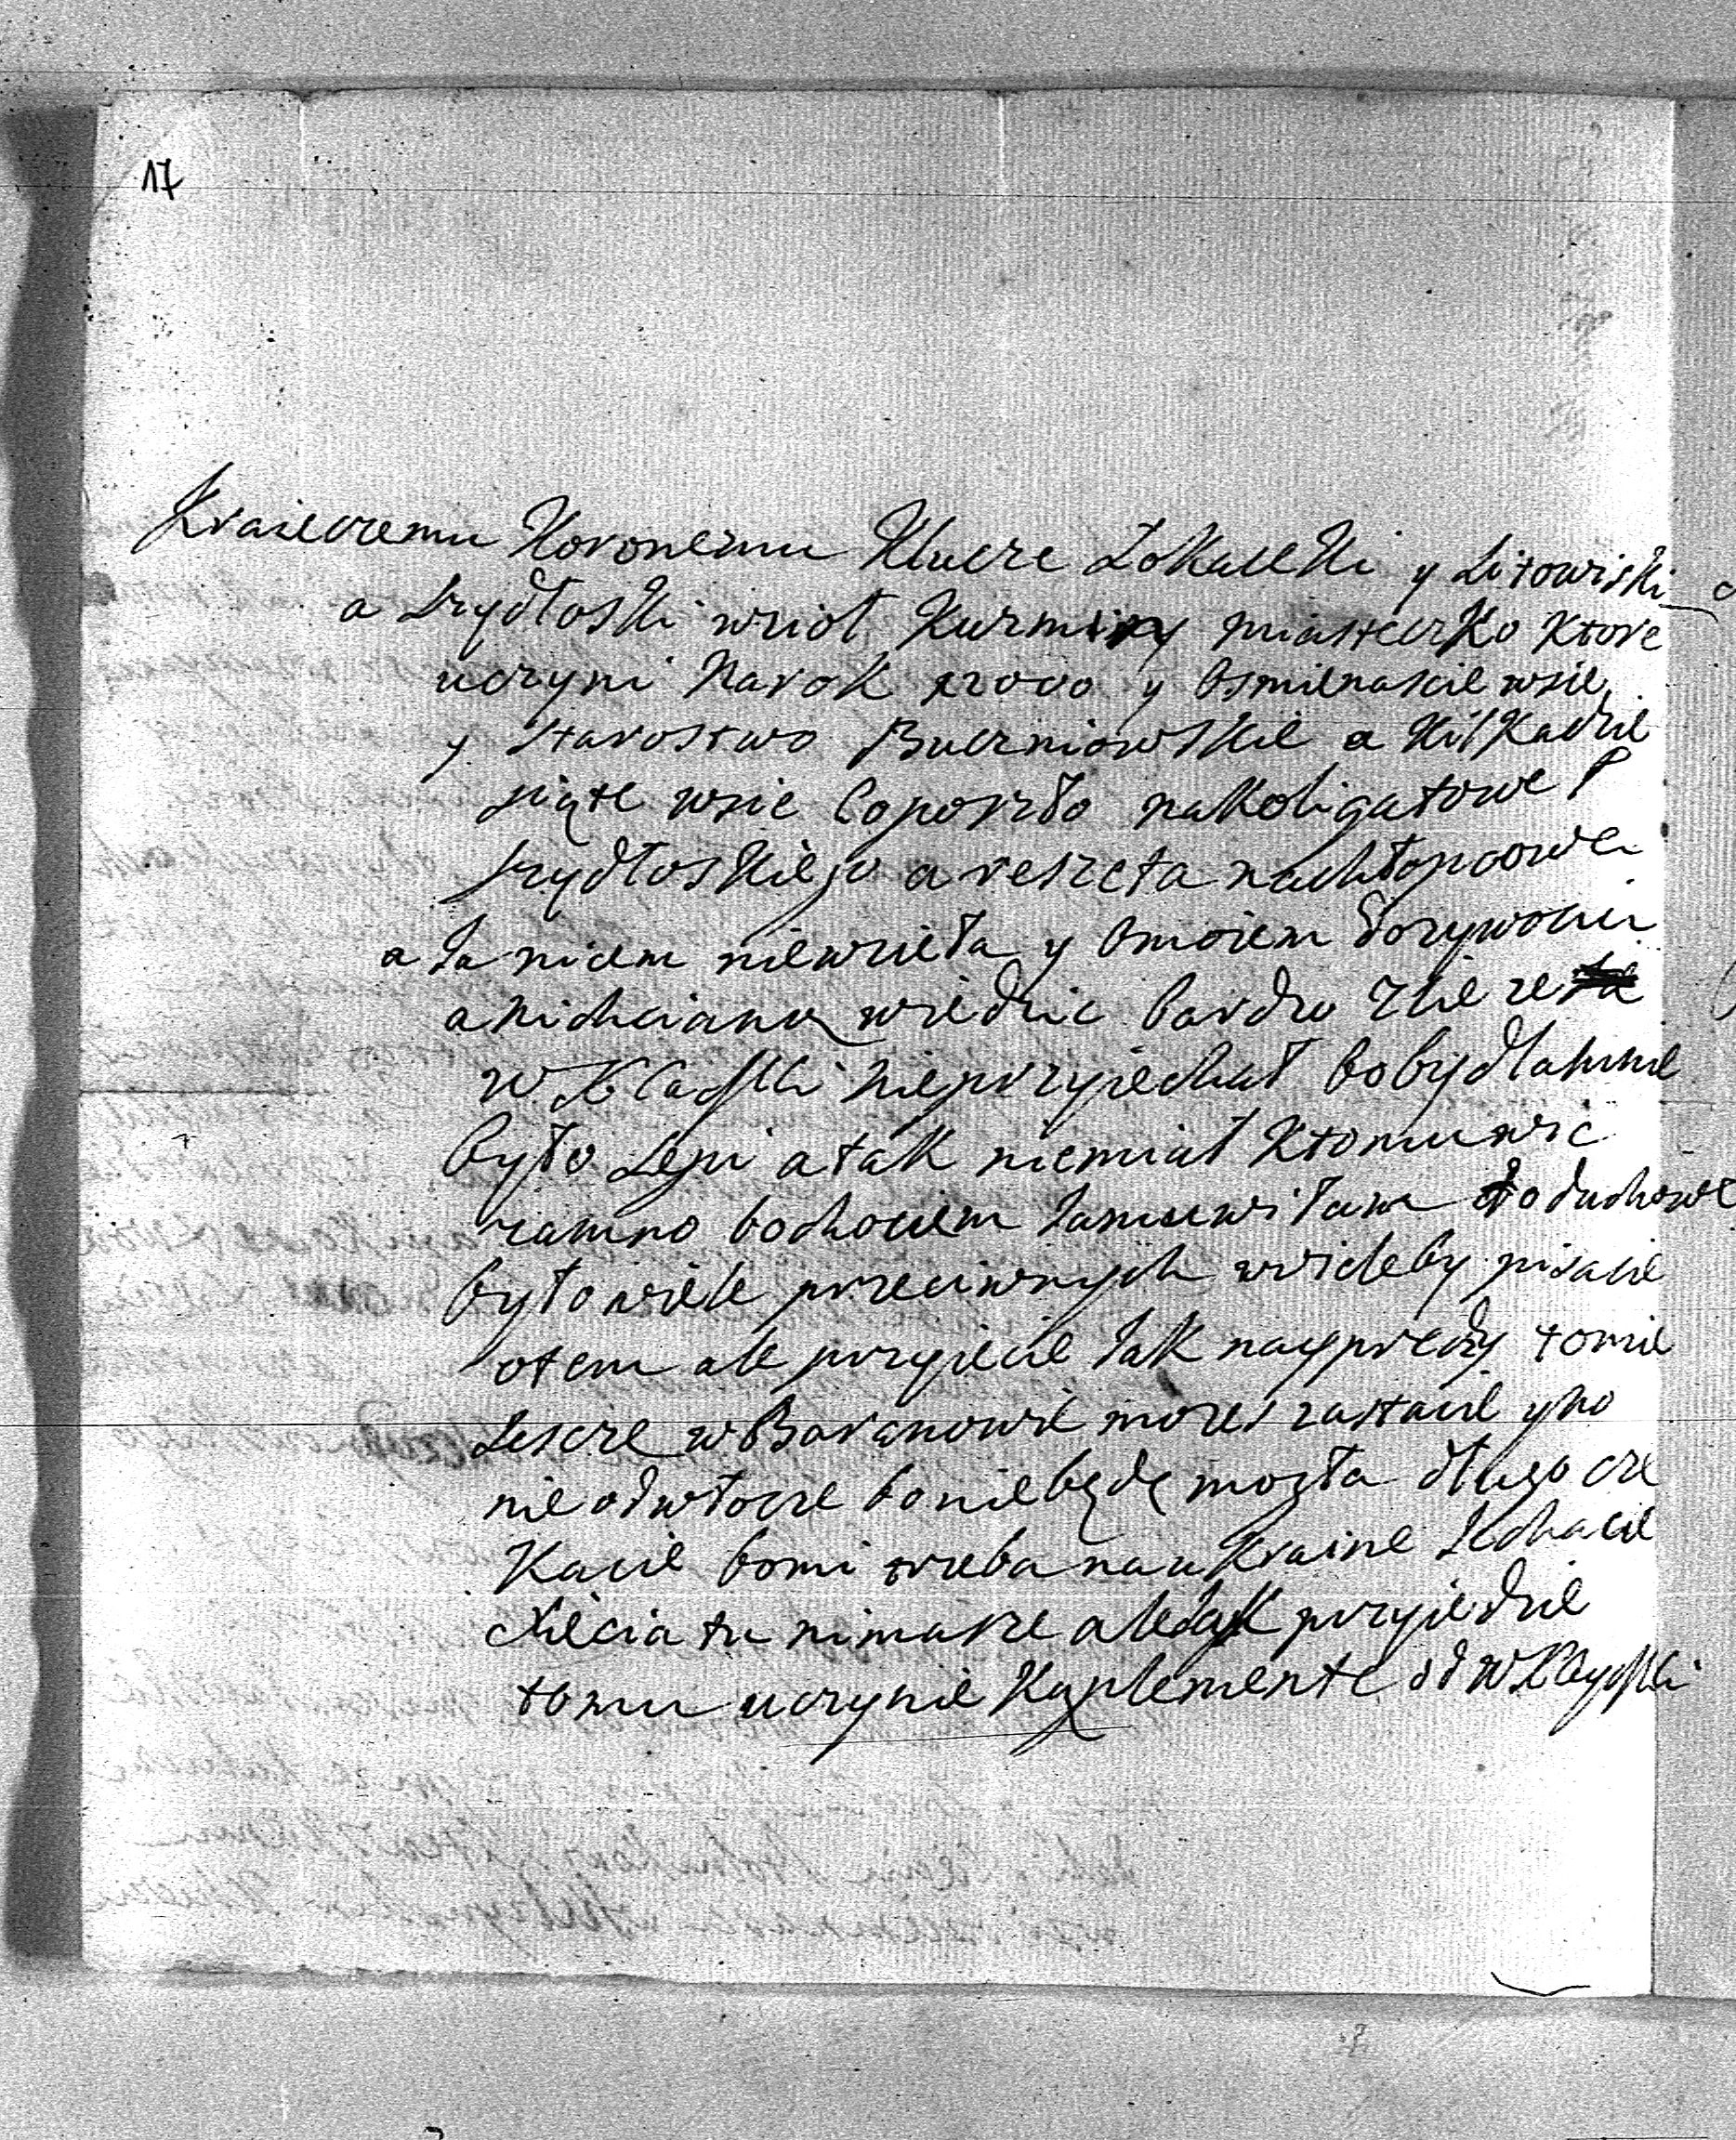 17
Kraieczemu Koronemu Klucze Łokaceki y Litowiski
a Szydłoski wziol Kuzminy miasteczko Ktore
uczyni Narok 12000 y Osmienascie wsie,
y starostwo Buczniowskie a Kilkadzie
siąte wsie Coposzło nakoligatowe P
szydłoskiego a reszeta nachłopcowe
a Ja niem niewzieła y Omoiem dozywociu
anichcianą wiedzic bardzo zlie ze
nieprzyiechał bobydlamnie
było Lepi atak niemiał Ktomuwic
zamno bochociem Jamuwiłam do duchowe
było wiele przeciwnych wicleby pisacie
otem ale przyiecie Jak nayprędzy tomie
Jescze wBaranowie mozes zastacie yno
nieodwłocze boniebędę mogła długo cze
Kacie bomi trzeba na uKraine Jechacie
xiecia tu nimasze aleJak przyiedzie
tomu uczynie Kąplemente od